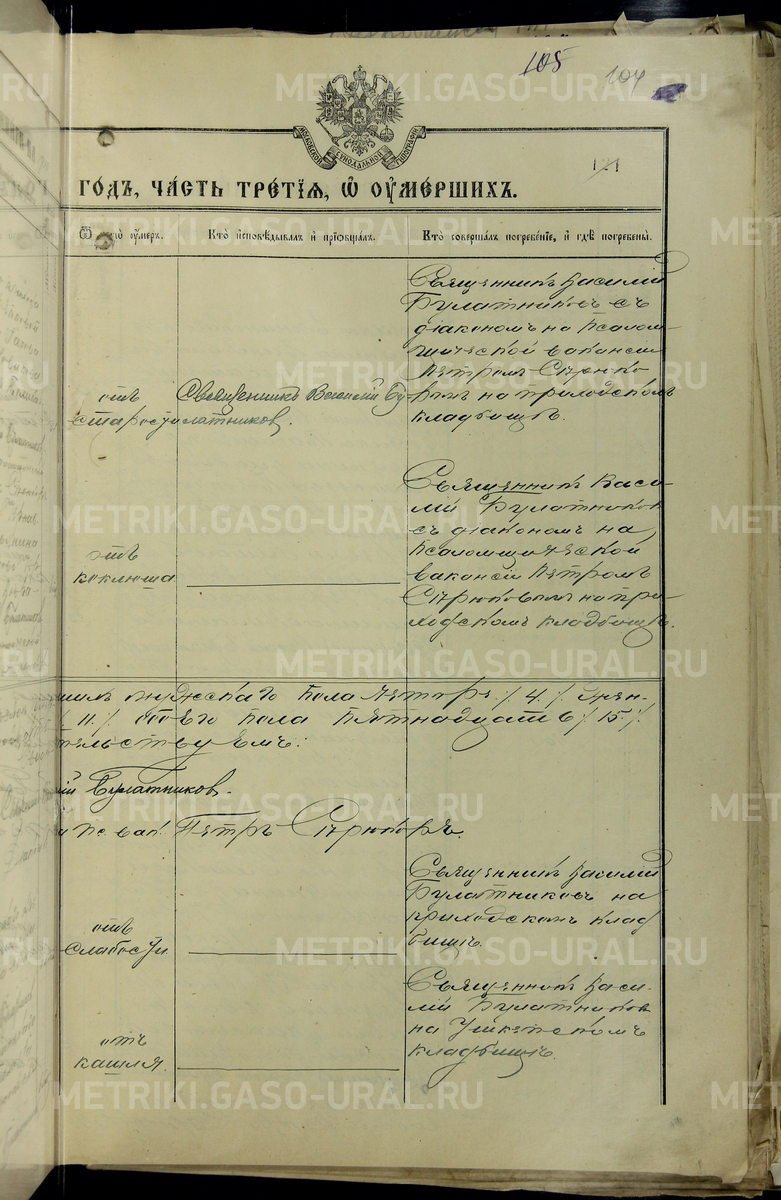 105
104
МОСКОВСКОЙ СѴНОДАЛЬНОЙ ТИПОГРАФІИ
121
ГОДЪ, ЧАСТЬ ТРЕТІЯ, Ѿ ОУМЕРШИХЪ.
Ѿ чего оумеръ.
Кто исповѣдывалъ и пріобщалъ.
Кто совершалъ погребеніе, и гдѣ погребены.
отъ
старости
Священникъ Василій Бу
латниковъ.
Священникъ Василій
Булатниковъ съ
діакономъ на псалом-
щической вакансіи
Петромъ Сѣрюко
вымъ на приходскомъ
кладбищѣ.
отъ
коклюша
Священникъ Васи-
лій Булатниковъ
съ діакономъ на
псаломщической
вакансіи Петромъ
Сѣрюковымъ на при-
ходскомъ кладбищѣ.
мужскаго пола четыре /4/ жен.
/11/ обоего пола пятнадцать /15/.
тельствуемъ:
ій Булатниковъ.
и пс. вак. Петръ Сѣрюковъ.
отъ
слабости
Священникъ Василій
Булатниковъ на
приходскомъ клад
бищѣ.
отъ
кашля.
Священникъ Васи-
лій Булатниковъ
на
кладбищѣ.
METRIKI.GASO-URAL.RU